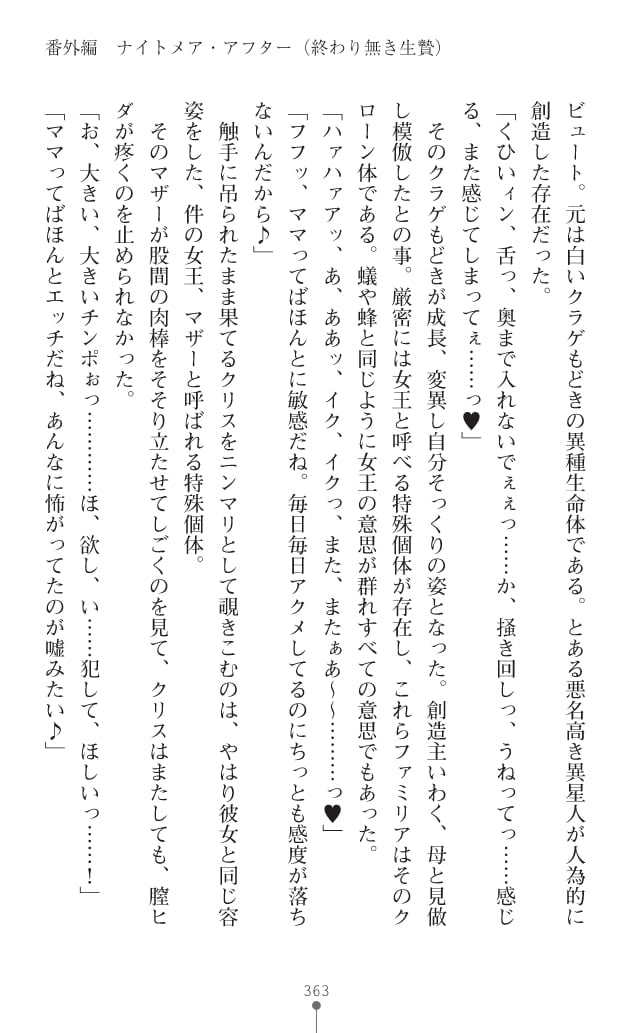 番外編　ナイトメア・アフター（終わり無き生贄）
ビュート。元は白いクラゲもどきの異種生命体である。とある悪名高き異星人が人為的に
創造した存在だった。
「くひいィン、舌っ、奥まで入れないでぇぇっ……か、掻き回しっ、うねってっ……感じ
る、また感じてしまってぇ……っ♥」
そのクラゲもどきが成長、変異し自分そっくりの姿となった。創造主いわく、母と見做
し模倣したとの事。厳密には女王と呼べる特殊個体が存在し、これらファミリアはそのク
ローン体である。蟻や蜂と同じように女王の意思が群れすべての意思でもあった。
「ハァハァアッ、あ、ああッ、イク、イクっ、また、またぁあ～～………っ♥」
「フフッ、ママってばほんとに敏感だね。毎日毎日アクメしてるのにちっとも感度が落ち
ないんだから♪」
触手に吊られたまま果てるクリスをニンマリとして覗きこむのは、やはり彼女と同じ容
姿をした、件の女王、マザーと呼ばれる特殊個体。
そのマザーが股間の肉棒をそそり立たせてしごくのを見て、クリスはまたしても、膣ヒ
ダが疼くのを止められなかった。
「お、大きい、大きいチンポぉっ…………ほ、欲し、い……犯して、ほしいっ……！」
「ママってばほんとエッチだね、あんなに怖がってたのが嘘みたい♪」
363